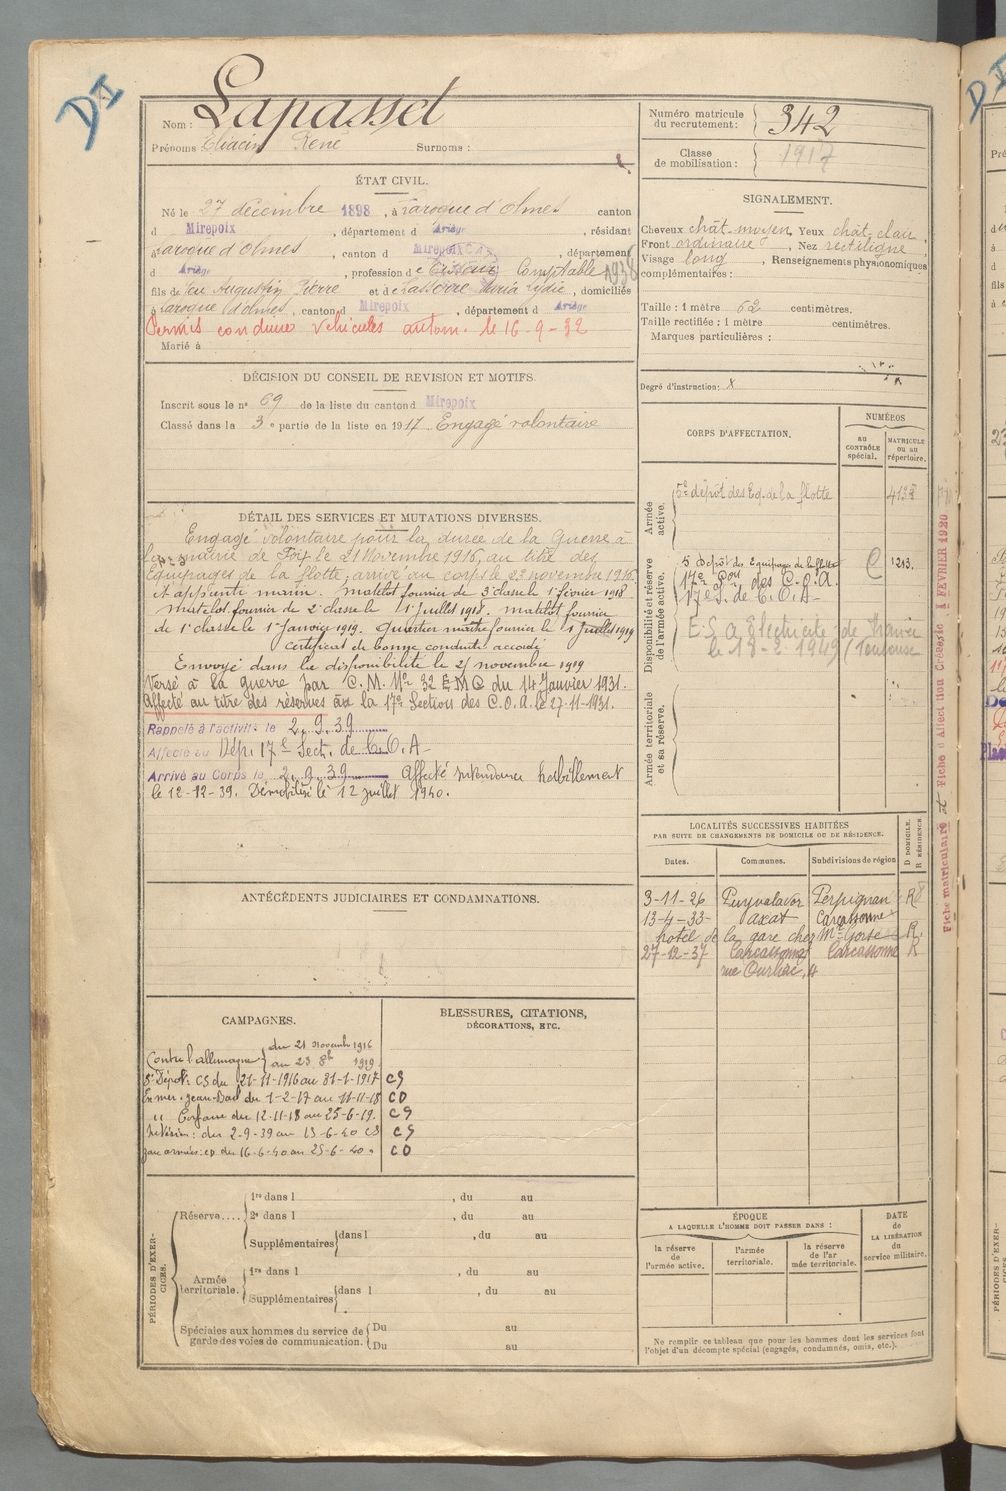 D I
Nom : Lapasset
Prénoms : Eliacin René Surnoms :
Numéro matricule du recrutement : 342
Classe de mobilisation : 1917
ÉTAT CIVIL.
Né le 27 décembre 1898, à Laroque d'Olmes canton
d Mirepoix, département d Ariège, résidant
à Laroque d'Olmes, canton d Mirepoix, département
d Ariège, profession de Comptable 1938
fils de feu Augustin Pierre et de Maria Lydie, domiciliés
à Laroque d'Olmes, canton d Mirepoix, département d Ariège
Permis conduire véhicules autom. le 16-9-32
Marié à
SIGNALEMENT.
Cheveux chât-moyen, Yeux chât. clair,
Front ordinaire, Nez rectiligne
Visage long, Renseignements physionomiques
complémentaires :
Taille : 1 mètre 62 centimètres.
Taille rectifiée : 1 mètre centimètres.
Marques particulières :
Degré d'instruction : X
DÉCISION DU CONSEIL DE REVISION ET MOTIFS.
Inscrit sous le n° 69 de la liste du canton d Mirepoix
Classé dans la 3e partie de la liste en 1917. Engagé volontaire
DÉTAIL DES SERVICES ET MUTATIONS DIVERSES.
Engagé volontaire pour la durée de la Guerre à
la mairie de Foix le 21 Novembre 1916, au titre des
Equipages de la flotte, arrivé au corps le 23 novembre 1916
et apprenti marin. matelot fourrier de 3e classe le 1er février 1918
matelot fourrier de 2e classe le 1er Juillet 1918. matelot fourrier
de 1e classe le 1er Janvier 1919. Quartier maître fourrier le 1 Juillet 1919
certificat de bonne conduite accordé
Envoyé dans la disponibilité le 25 novembre 1919
Versé à la guerre par C.M. N° 32 EMG du 14 Janvier 1931.
Affecté au titre des réserves à la 17e Section des C.O.A. le 27-11-1931.
Rappelé à l'activité le 2.9.39
Affecté au Dép. 17e Sect. de C.O.A
Arrivé au Corps le 2.9.39 Affecté Intendance habillement
le 12-12-39. Démobilisé le 12 juillet 1940.
CORPS D'AFFECTATION.
NUMÉROS
au contrôle spécial.
MATRICULE ou au répertoire.
Armée active.
5e dépôt des Eq. de la flotte
Disponibilité et réserve de l'armée active.
5 Dépôt des Equipages de la flotte C 1213.
17e des C.O.A.
17e S. de C.O.A
E.S.a Electricité de France
le 18-2-1949 (Toulouse
Armée territoriale et sa réserve.
Fiche matriculaire et Fiche d'Affectation Créées le 1 FEVRIER 1920
LOCALITÉS SUCCESSIVES HABITÉES
PAR SUITE DE CHANGEMENTS DE DOMICILE OU DE RÉSIDENCE.
D DOMICILE. R RÉSIDENCE.
Dates. Communes. Subdivisions de région
3-11-26 Puyvalador Perpignan R
13-4-33 Axat Carcassonne
hôtel de la gare chez Mr Gorse R.
27-12-37 Carcassonne Carcassonne R
rue Ourliac, 4
ANTÉCÉDENTS JUDICIAIRES ET CONDAMNATIONS.
CAMPAGNES.
Contre l'allemagne du 21 novembre 1916
au 23 8bre 1919
5e Dépôt: CS du 21-11-1916 au 31-1-1917 CS
En mer. Jean-Bart du 1-2-17 au 11-11-18 CD
" du 12-11-18 au 25-6-19. CS
Intérieur : du 2-9-39 au 15-6-40 CS CS
zone armées: CD du 16-6-40 au 25-6-40. CD
BLESSURES, CITATIONS,
DÉCORATIONS, ETC.
PÉRIODES D'EXERCICES.
Réserve.... 1re dans l , du au
2e dans l , du au
Supplémentaires dans l , du au
Armée territoriale. 1re dans l , du au
Supplémentaires dans l , du au
Spéciales aux hommes du service de Du au
garde des voies de communication. Du au
ÉPOQUE
A LAQUELLE L'HOMME DOIT PASSER DANS :
DATE de LA LIBÉRATION du service militaire.
la réserve de l'armée active.
l'armée territoriale.
la réserve de l'armée territoriale.
Ne remplir ce tableau que pour les hommes dont les services font
l'objet d'un décompte spécial (engagés, condamnés, omis, etc.).